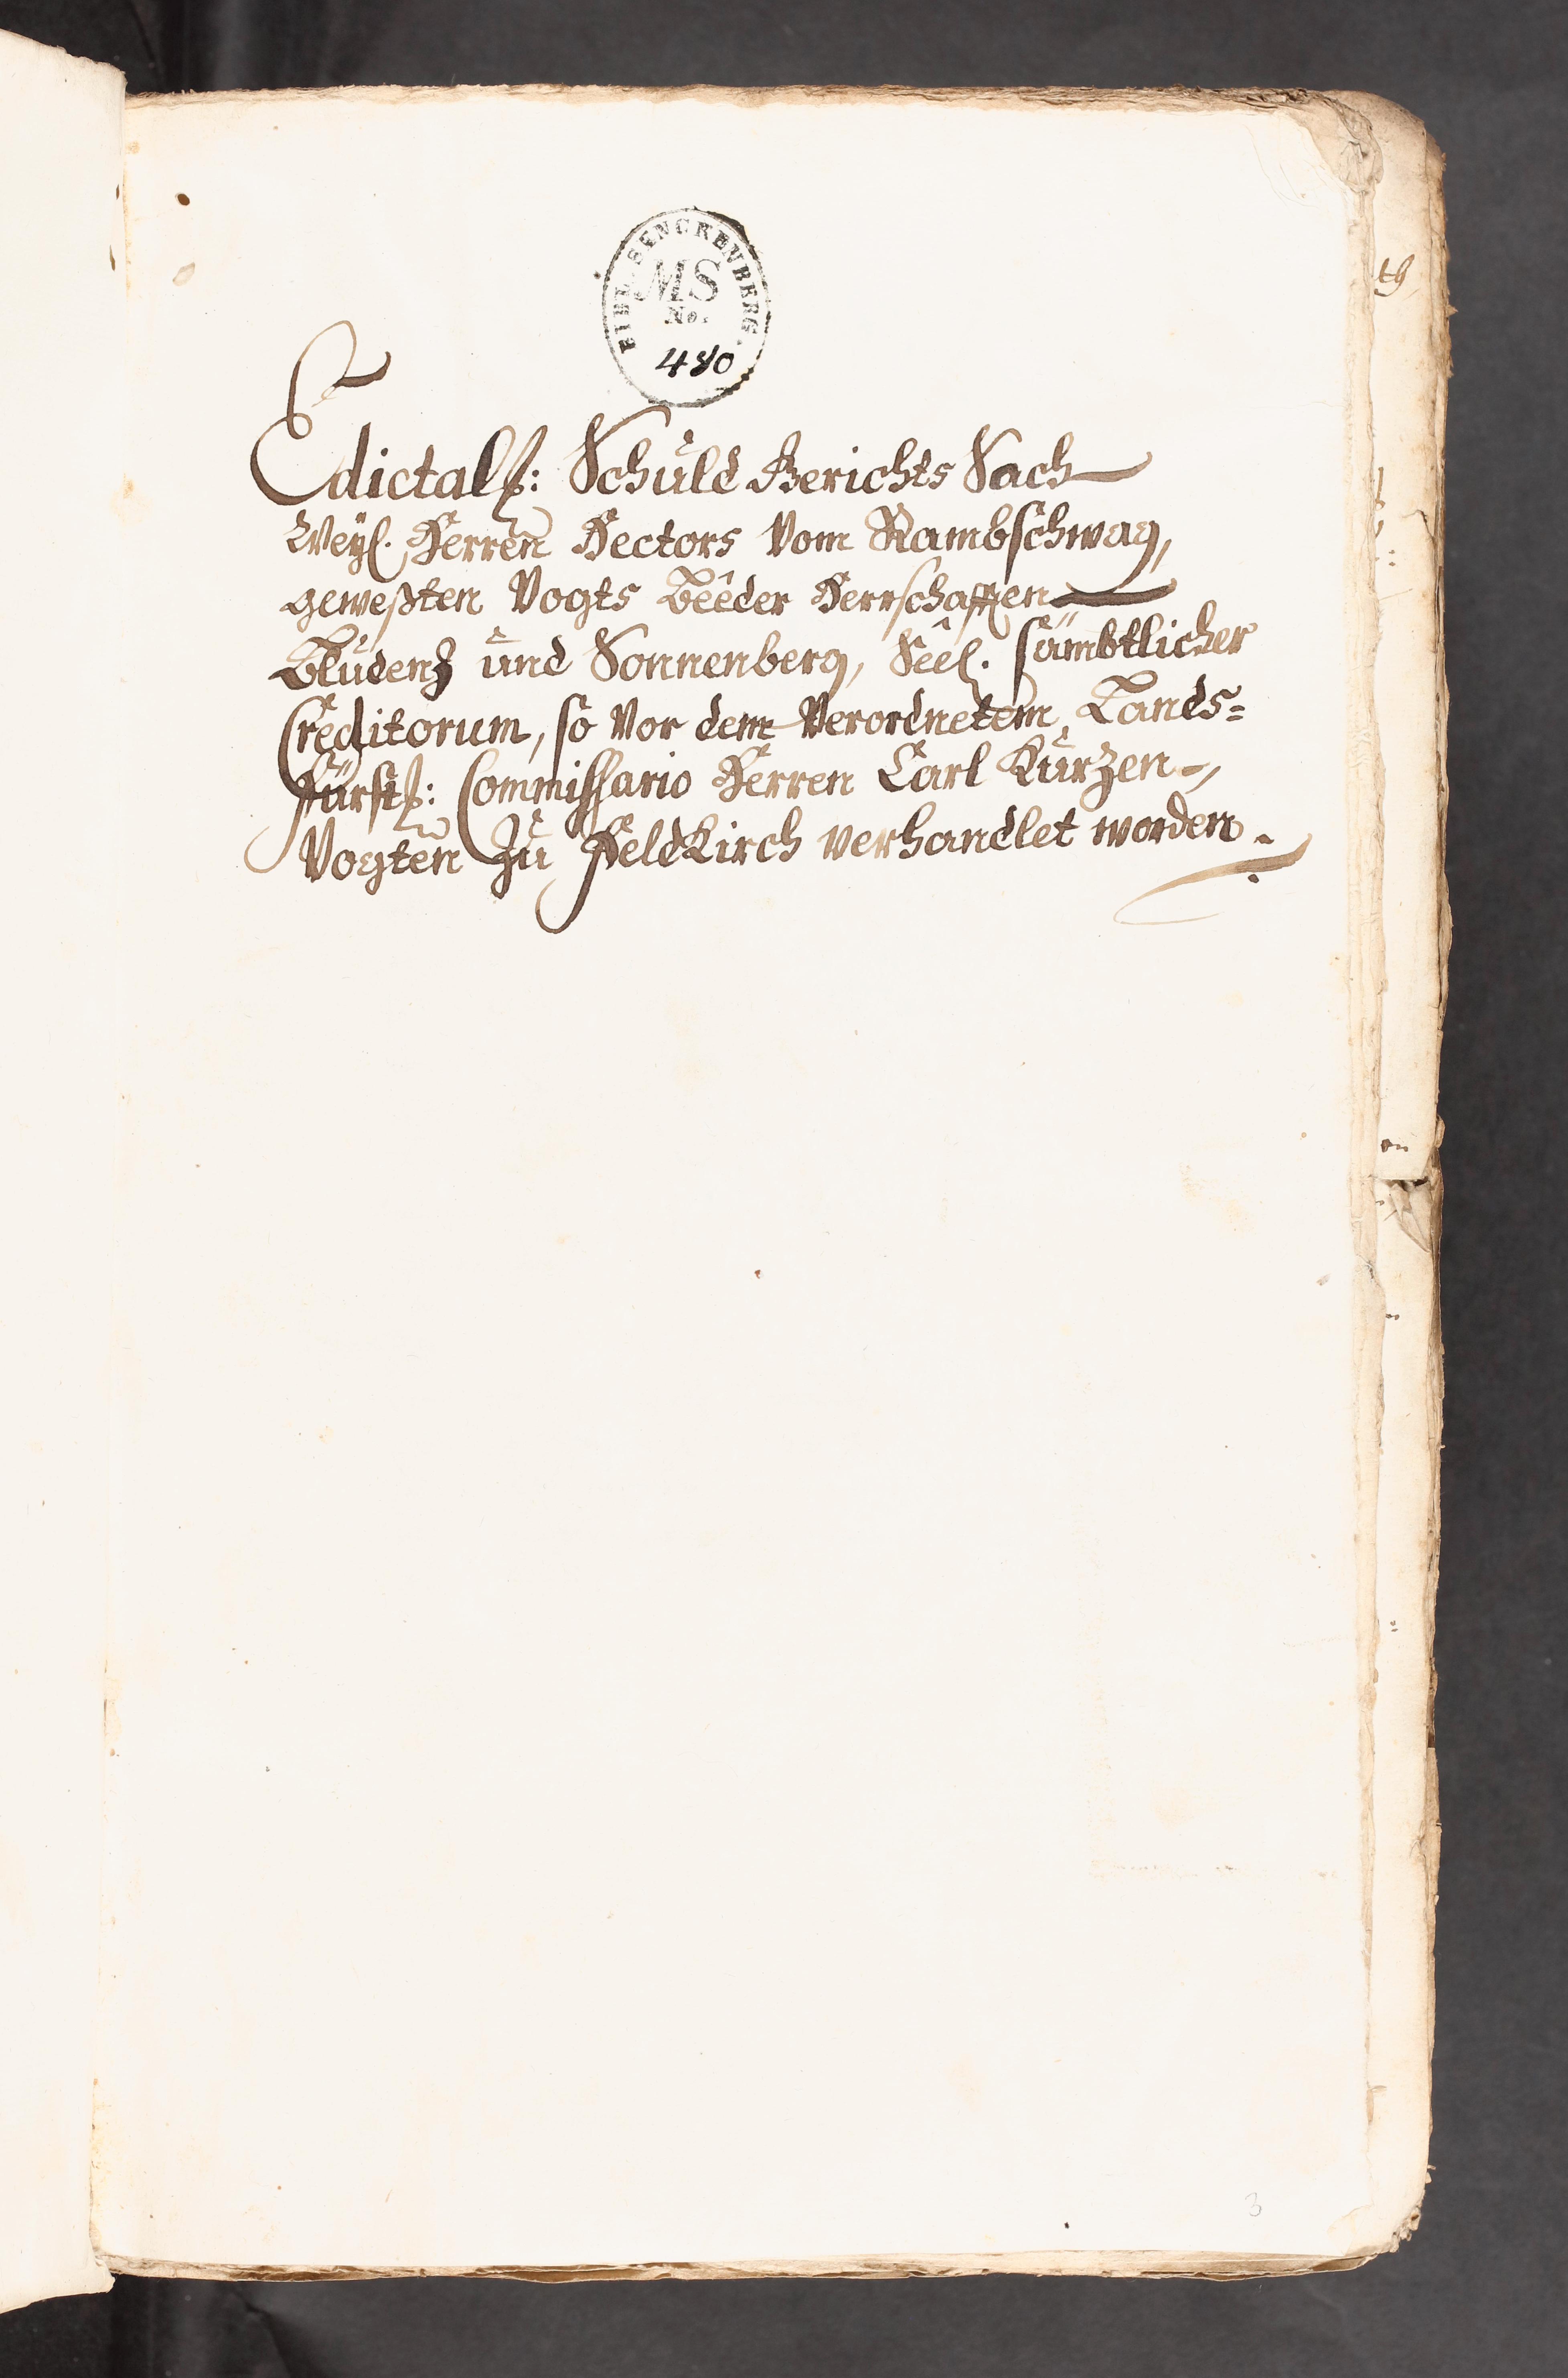 BIBL. SENCKENBERG.
MS
No.
480
Edictalß: Schuld Gerichts Sach
Weyl. Herren Hectors Vom Rambschwag,
geweßten Vogts Beeder Herrschafften
Bludenz und Sonnenberg, Seel. sämbtlicher
Creditorum, so Vor dem Verordnetem Lands-
fürstl: Commissario Herren Carl Kurzen,
Vogten Zu Feldkirch verhandlet worden.
3